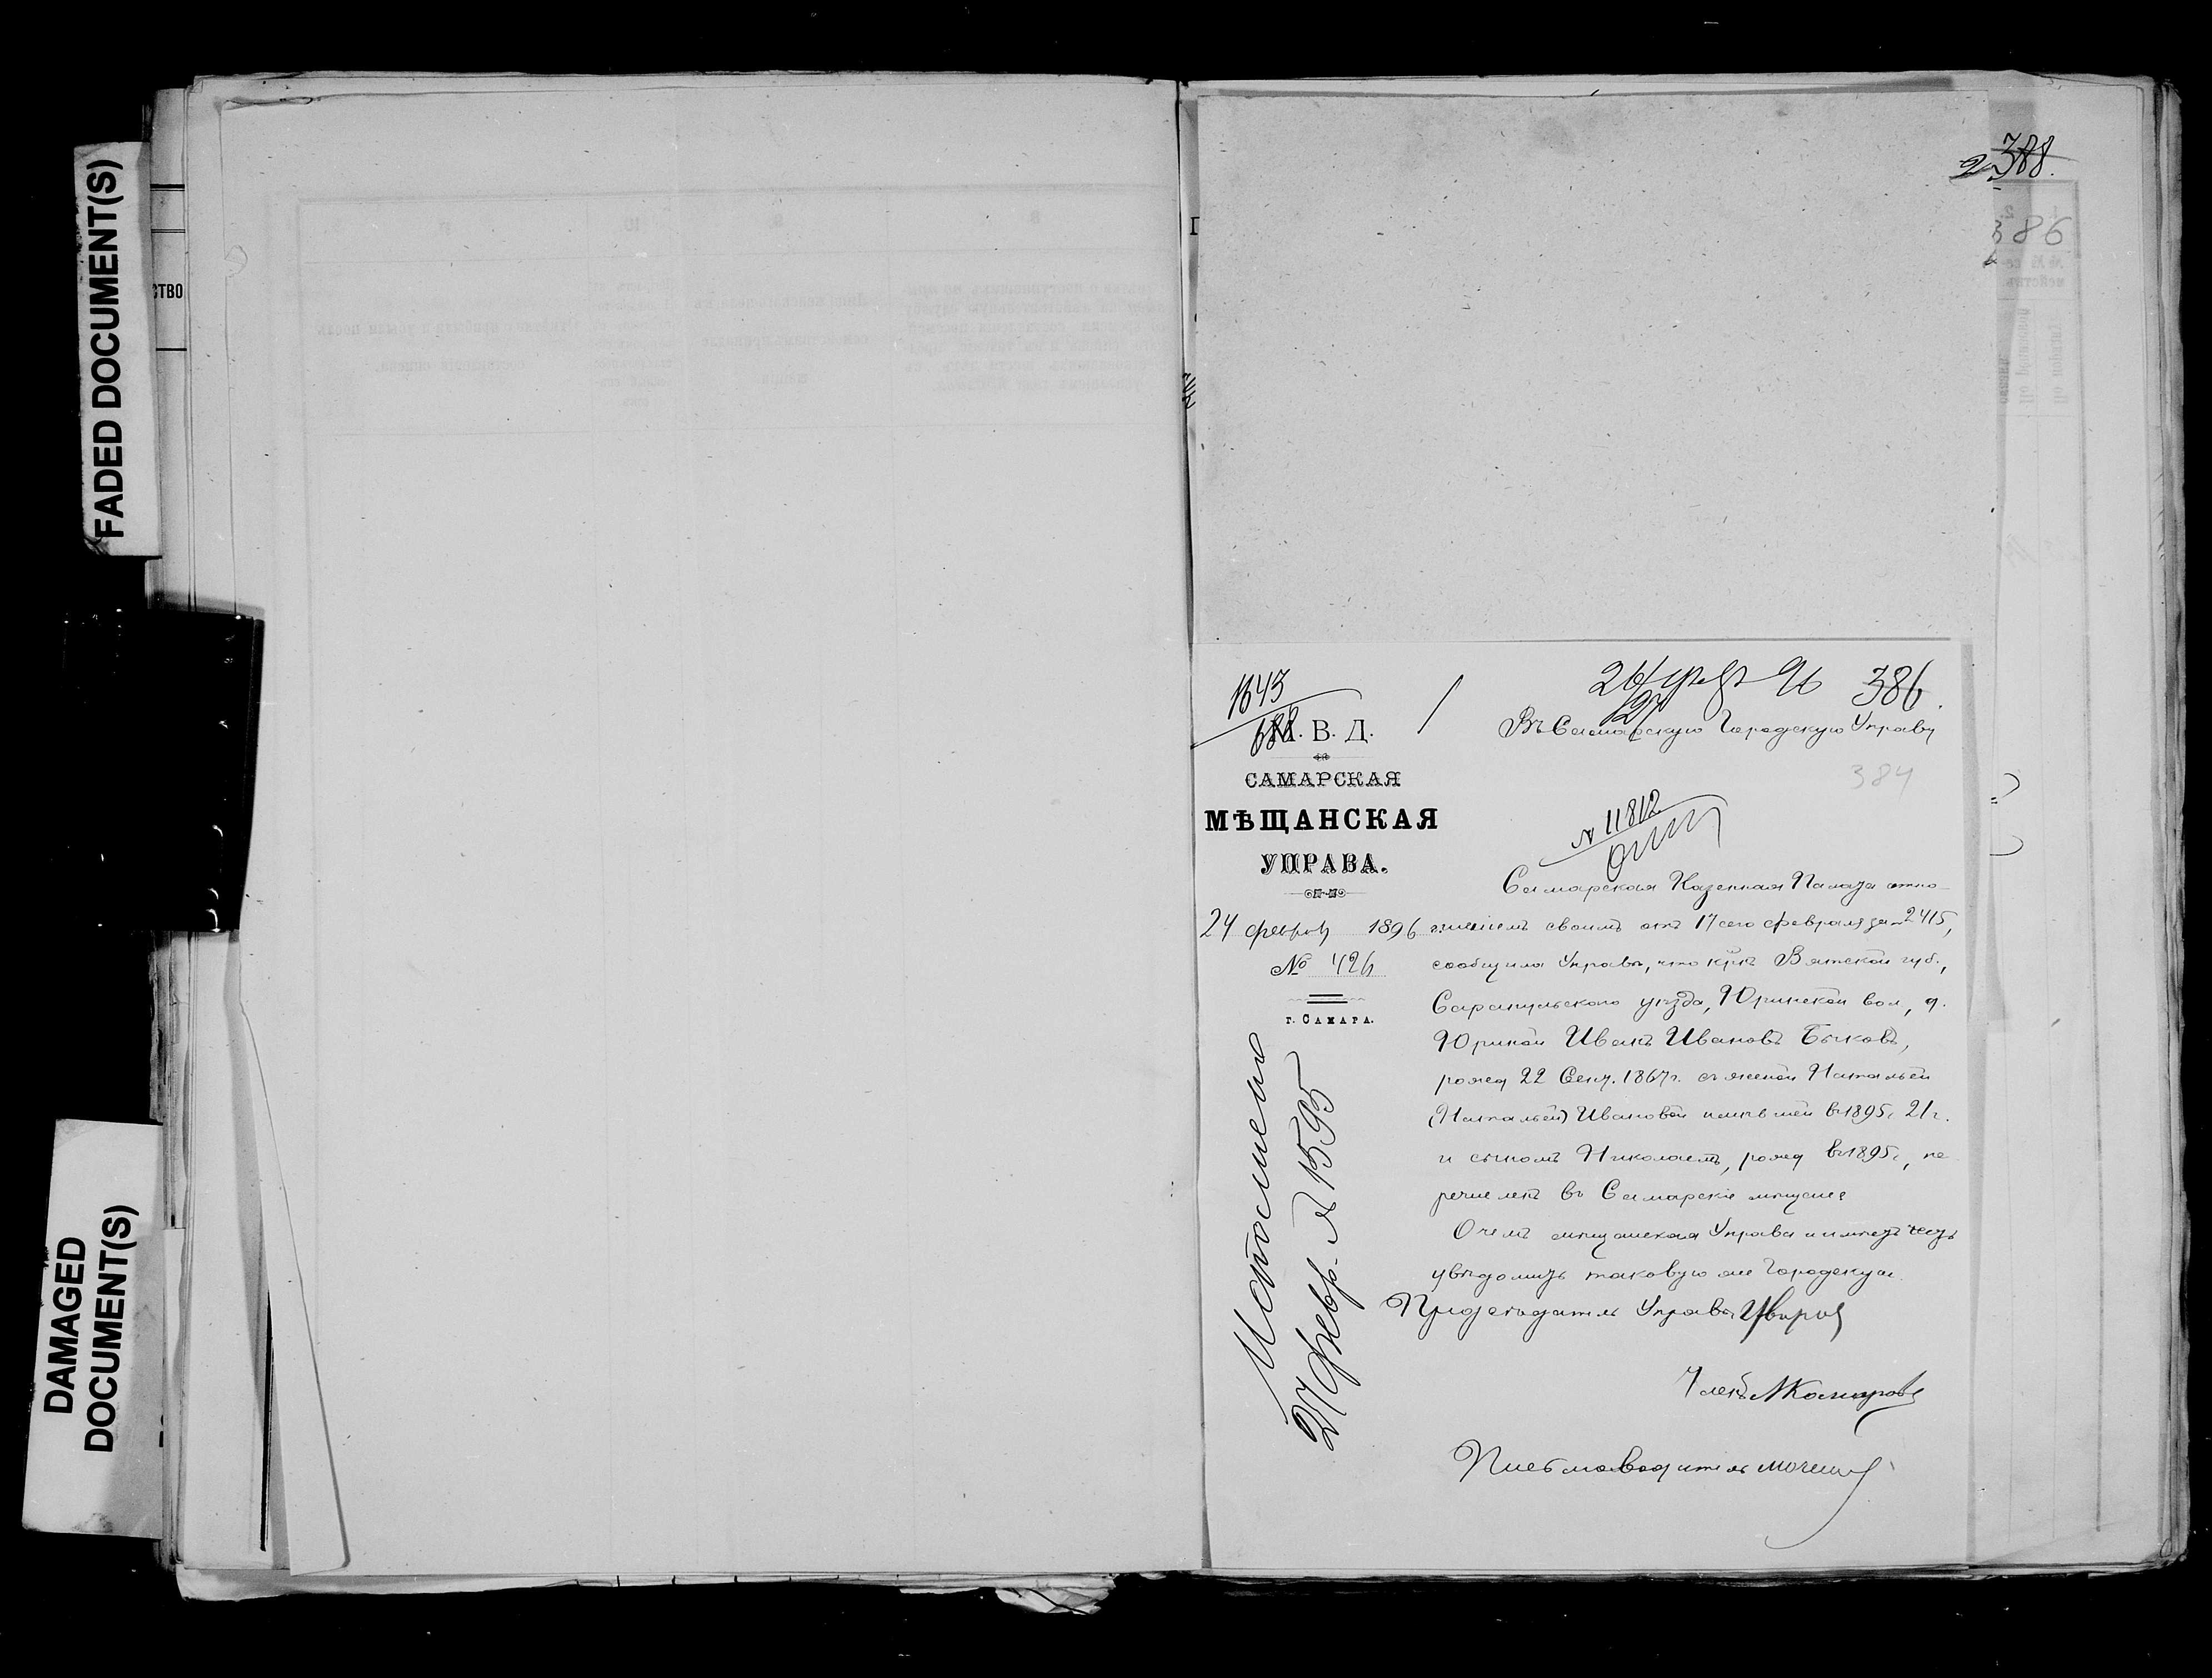 FADED DOCUMENT(S)
DAMAGED
DOCUMENT(S)
СТВО
388.
386
1643
24 февр 96
27
386.
М. В. Д.
Въ Самарскую Городскую Управу
САМАРСКАЯ
384
МѢЩАНСКАЯ
№ 11812
УПРАВА.
Самарская Казенная Палата отно-
24 февраля 1896 г.
шеніемъ своимъ отъ 17 сего февраля за № 2415,
№ 426
сообщила Управѣ, что кр-нъ Вятской губ.,
Сарапульскаго уѣзда, Юринской вол., д.
г. САМАРА.
Юриной Иванъ Ивановъ Быковъ,
рожд 22 Сент. 1867 г. съ женой Натальей
(Натальей) Ивановой имѣвшей въ 1895 г. 21 г.
и сыномъ Николаемъ, рожд въ 1895 г., пе
речисленъ въ Самарскіе мѣщане
О чемъ мѣщанская Управа и имѣетъ честь
увѣдомить таковую же Городскую.
Предсѣдатель Управы
Членъ Комаровъ
Письмоводитель
Исполнено
27 февр. № 1595